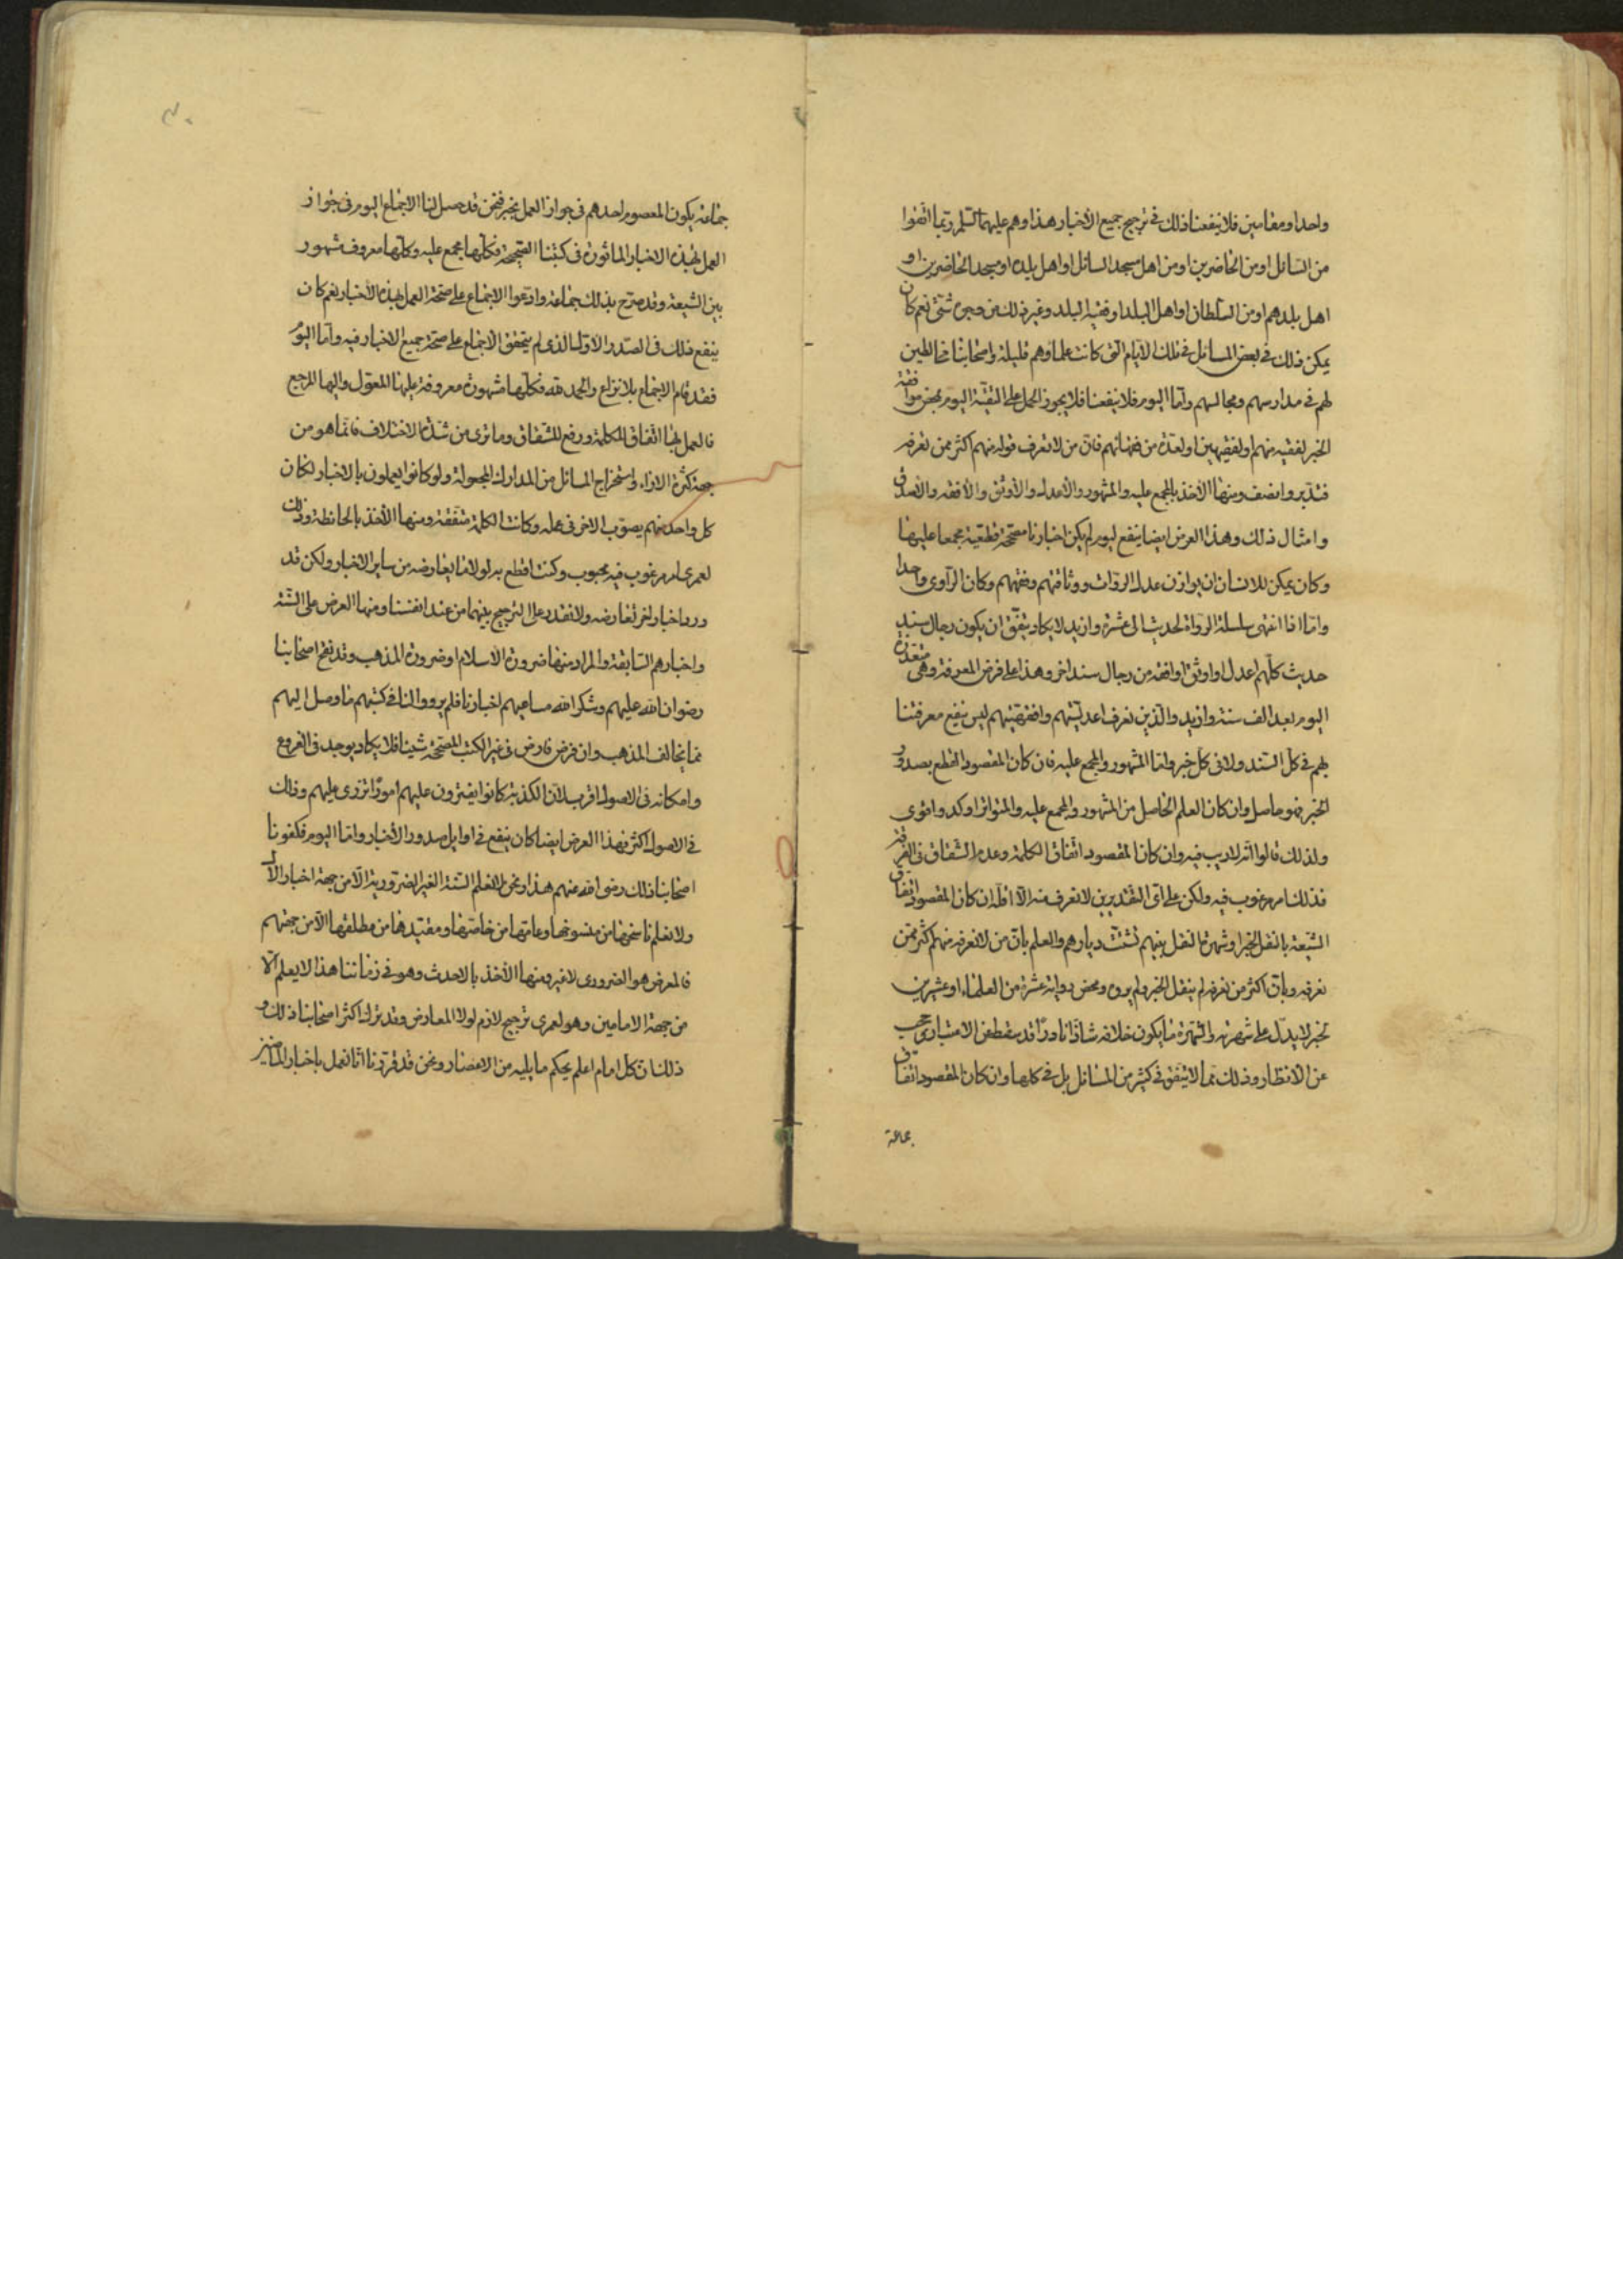 واحدا ومقامين فلا ينفعنا ذلك في ترجيح جميع الأخبار هذا وهم عليهما السلم ربما اتقوا
من السائل او من الحاضرين او من اهل مسجد السائل او اهل بلده او مسجد الحاضرين او
اهل بلدهم او من السلطان او اهل البلد او فقيه البلد وغير ذلك من وجوه شتى نعم كان
يمكن ذلك في بعض المسائل في تلك الايام التى كانت علماؤهم قليلة واصحابنا مخالطين
لهم في مدارسهم ومجالسهم واما اليوم فلا ينفعنا فلا يجوز الحمل على التقية اليوم بمحض موافقة
الخبر لفقيه منهم او لفقيهين او لعدة من فقهائهم فان من لا نعرف قوله منهم اكثر ممن نعرفه
فتدبر وانصف ومنها الأخذ بالمجمع عليه والمشهور والأعدل والأوثق والأفقه والأصدق
وامثال ذلك وهذا العرض ايضا ينفع لو لم يكن اخبارنا مصححة قطعية مجمعا عليها
وكان يمكن للانسان ان يوازن عدل الروات ووثاقتهم وفقههم وكان الراوى واحدا
واما اذا انتهى سلسلة الرواة لحديث الى عشرة وازيد لا يكاد يتفق ان يكون رجال سند
حديث كلهم اعدل او اوثق او افقه من رجال سند اخر وهذا على فرض المعرفة وهى متعذرة
اليوم بعد الف سنة وازيد والذين نعرف اعدليتهم وافقهيتهم ليس ينفع معرفتنا
بهم في كل السند ولا فى كل خبر واما المشهور والمجمع عليه فان كان المقصود القطع بصدور
الخبر فهو حاصل وان كان العلم الحاصل من المشهور والمجمع عليه والمتواتر اوكد واقوى
ولذلك قالوا انه لا ريب فيه وان كان المقصود اتفاق الكلمة وعدم الشقاق فى الفرقة
فذلك امر مرغوب فيه ولكن على اى التقديرين لا نعرف منه الا اقله ان كان المقصود اتفاق
الشيعة بالنقل الخبر او شهرة النقل بينهم لتشتت ديارهم والعلم بان من لا نعرفه منهم اكثر ممن
نعرفه وبان اكثر من نعرفه لم ينقل الخبر ولم يروه ومحض رواية عشرة من العلماء او عشرين
لخبر لا يدل على شهرته والشهرة ما يكون خلافه شاذا نادرا قد سقط عن الاعتبار وحجب
عن الانظار وذلك مما لا يتفق في كثير من المسائل بل في كلها وان كان المقصود اتفاق
جماعة
جماعة يكون المعصوم احدهم فى جواز العمل بخبر فنحن قد حصل لنا الاجماع اليوم فى جواز
العمل بهذه الاخبار الماثورة فى كتبنا الصحيحة فكلها مجمع عليه وكلها معروف مشهور
بين الشيعة وقد صرح بذلك جماعة وادعوا الاجماع على صحة العمل بهذه الأخبار نعم كان
ينفع ذلك فى الصدر الاول الذى لم يتحقق الاجماع على صحة جميع الاخبار فيه واما اليوم
فقد قام الاجماع بلا نزاع والحمد لله فكلها مشهورة معروفة عليها المعول واليها المرجع
فالعمل بها اتفاق للكلمة ورفع للشقاق وما ترى من شدة الاختلاف فانما هو من
جهة كثرة الاراء واستخراج المسائل من المدارك المجعولة ولو كانوا يعملون بالاخبار لكان
كل واحد منهم يصوب الاخر فى عمله وكانت الكلمة متفقة ومنها الأخذ بالحائطة وذلك
لعمرى امر مرغوب فيه محبوب وكنت اقطع به لولا ما يعارضه من ساير الاخبار ولكن قد
ورد اخبار اخر تعارضه ولا نقدر على الترجيح بينهما من عند انفسنا ومنها العرض على السنة
واخبارهم السابقة والمراد منها ضرورة الأسلام او ضرورة المذهب وقد نقح اصحابنا
رضوان الله عليهم وشكر الله مساعيهم اخبارنا فلم يرووا لنا فى كتبهم ما وصل اليهم
مما يخالف المذهب وان فرض فارض فى غير الكتب المصححة شيئا فلا يكاد يوجد فى الفروع
وامكانه فى الاصول اقرب لان الكذبة كانوا يفترون عليهم امورا تزرى عليهم وذلك
فى الاصول اكثر فهذا العرض ايضا كان ينفع فى اوايل صدور الأخبار واما اليوم فكفونا
اصحابنا ذلك رضى الله عنهم هذا ونحن لا نعلم السنة الغير الضرورية الا من جهة اخبار الآل
ولا نعلم ناسخها من منسوخها وعامها من خاصها ومقيدها من مطلقها الا من جهتهم
فالمعرض هو الضرورى لا غير ومنها الأخذ بالاحدث وهو فى زماننا هذا لا يعلم الا
من جهة الامامين وهو لعمرى ترجيح لازم لولا المعارض وقد ترك اكثر اصحابنا ذلك و
ذلك ان كل امام اعلم بحكم ما يليه من الاعصار ونحن قد قررنا انا نعمل باخبار الماضين